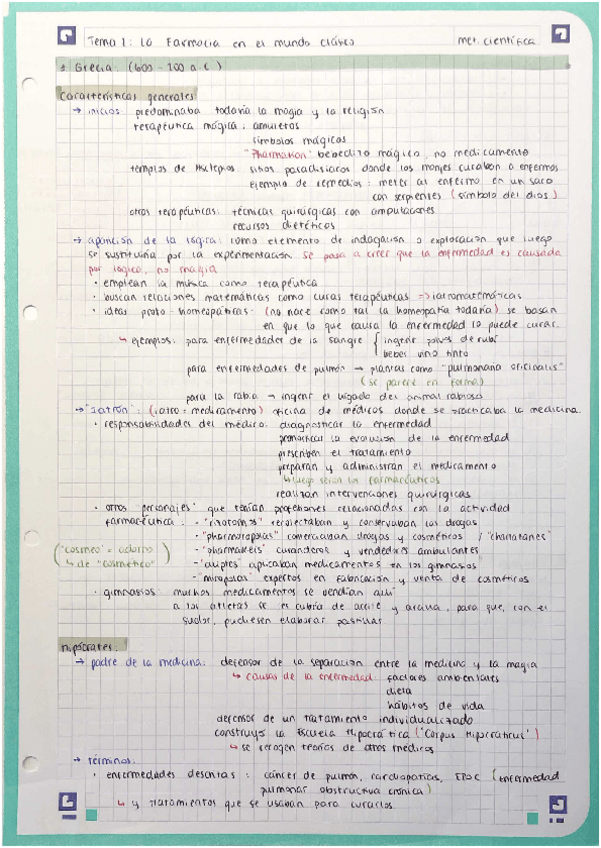 Tema 1: La Farmacia en el mundo clásico met. científica
1 Grecia: (600 - 200 a.C.)
Características generales
→ inicios: predominaba todavía la magia y la religión
terapéutica mágica: amuletos
símbolos mágicos
"Pharmakon": bebedizo mágico, no medicamento
templos de Asclepios: sitios paradisiacos donde los monjes curaban a enfermos
ejemplo de remedios: meter al enfermo en un saco
con serpientes (símbolo del dios)
otras terapéuticas: técnicas quirúrgicas con amputaciones
recursos dietéticos
→ aparición de la lógica: como elemento de indagación o exploración que luego
se sustituiría por la experimentación se pasa a creer que la enfermedad es causada
por lógica, no magia
• emplean la música como terapéutica
• buscan relaciones matemáticas como curas terapéuticas => iatromatemáticas
• ideas proto-homeopáticas: (no nace como tal la homeopatía todavía) se basan
en que lo que causa la enfermedad lo puede curar.
↳ ejemplos: para enfermedades de la sangre { ingerir polvos de rubí
beber vino tinto
para enfermedades de pulmón → plantas como "pulmonaria officinalis"
(se parece en forma)
para la rabia → ingerir el hígado del animal rabioso
→ "Iatrón": (iatro = medicamento) oficina de médicos donde se practicaba la medicina.
• responsabilidades del médico: diagnosticar la enfermedad
pronosticar la evolución de la enfermedad
prescriben el tratamiento
preparan y administran el medicamento
↳ luego serán los farmacéuticos
realizan intervenciones quirúrgicas
• otros "personajes" que tenían profesiones relacionadas con la actividad
farmacéutica: - recolectaban y conservaban las drogas
- "pharmacopolas" comerciaban drogas y cosméticos / "charlatanes"
("cosmeo" = adorno - "pharmakeis" curanderos y vendedores ambulantes
↳ de "cosmético") - "aliptes" aplicaban medicamentos en los gimnasios
- "miropolas" expertos en fabricación y venta de cosméticos
• gimnasios: muchos medicamentos se vendían aquí
a los atletas se les cubría de aceite y arena, para que, con el
sudor, pudiesen elaborar pastillas
Hipócrates:
→ padre de la medicina: defensor de la separación entre la medicina y la magia
↳ causas de la enfermedad: factores ambientales
dieta
hábitos de vida
defensor de un tratamiento individualizado
construyó la Escuela Hipocrática ("Corpus Hipocraticus")
↳ se recogen teorías de otros médicos
→ términos:
• enfermedades descritas: cáncer de pulmón, cardiopatías, EPOC (enfermedad
pulmonar obstructiva crónica)
↳ y tratamientos que se usaban para curarlos